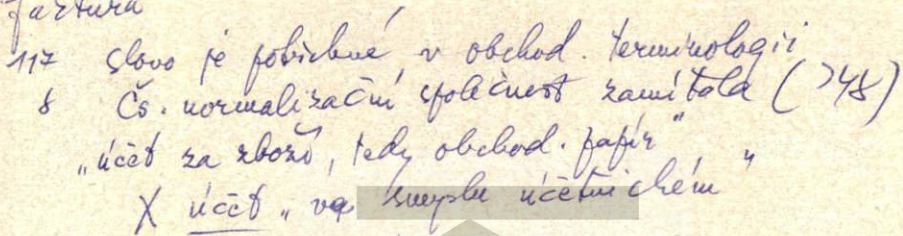 faktura
117 slovo je potřebné v obchod. terminologii
8 Čs. normalizační společnost zamítala (748)
„účet za zboží, tedy obchod. papír"
X účet „ve smyslu účetnickém"